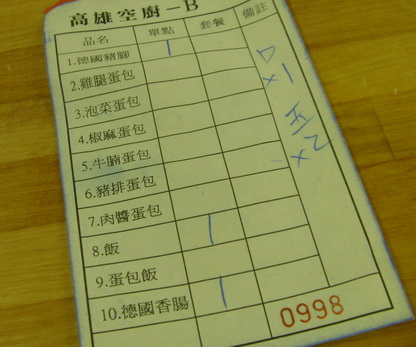 高雄空廚－B
品名 單點 套餐 備註
1.德國豬腳 1
2.雞腿蛋包
3.泡菜蛋包
4.椒麻蛋包
5.牛腩蛋包
6.豬排蛋包
7.肉醬蛋包
8.飯 1
9.蛋包飯
10.德國香腸 1
x1
x2
0998